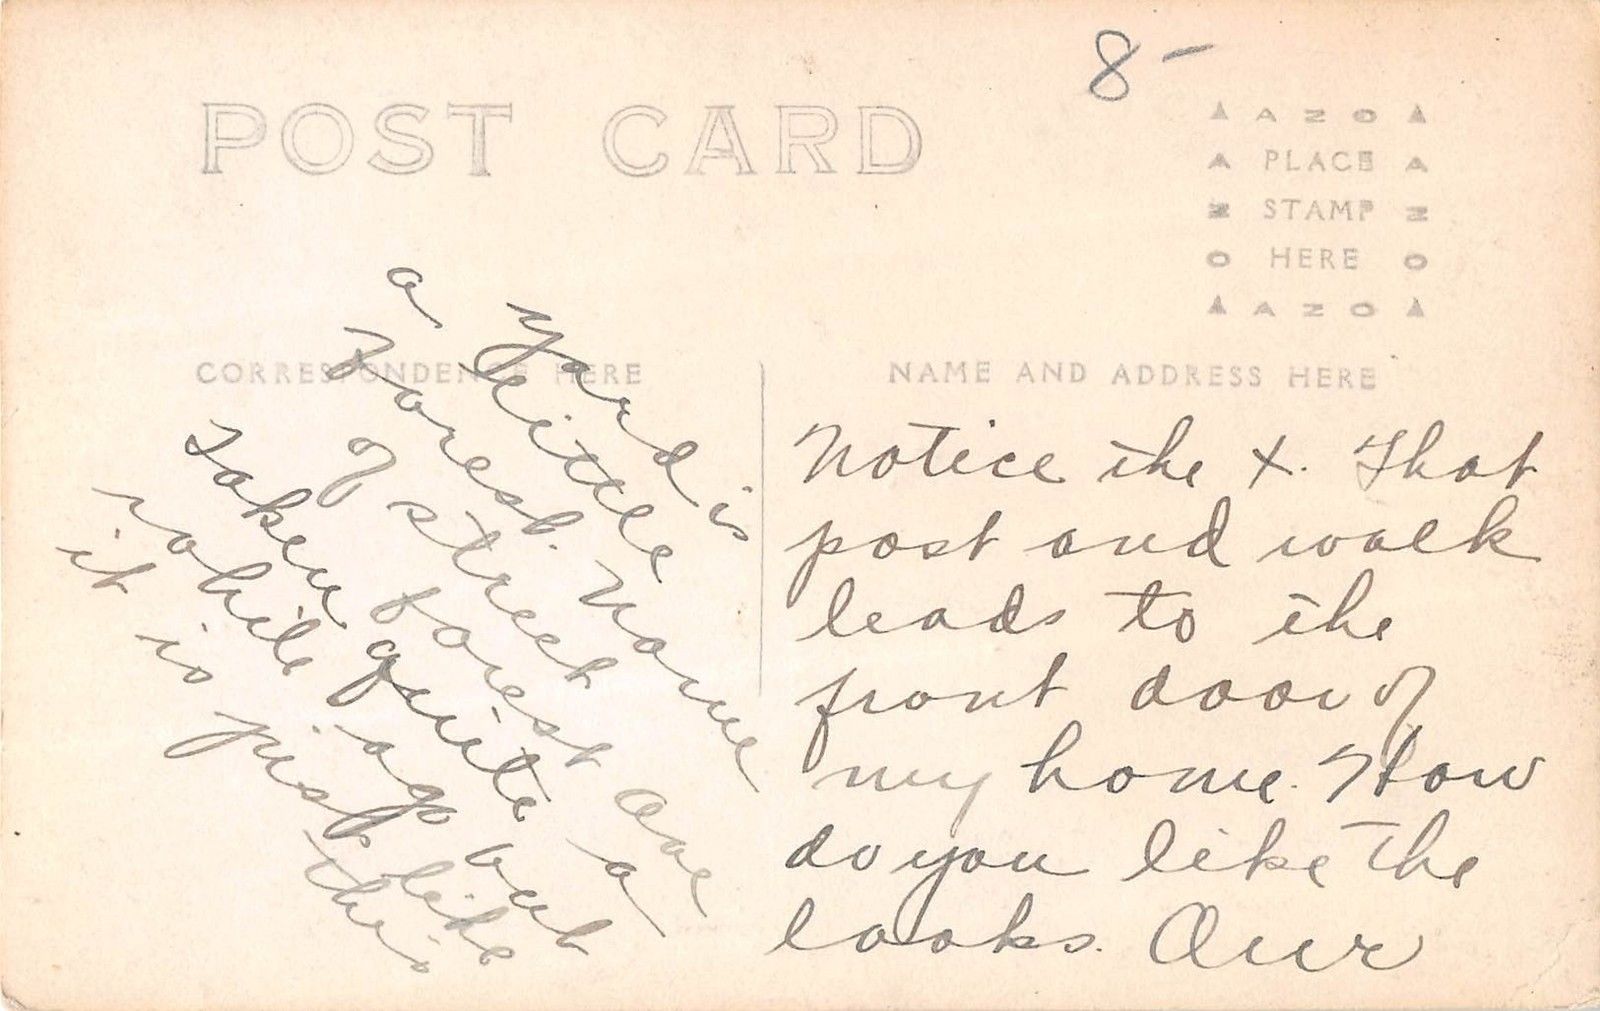 8-
POST CARD
▲ A Z O ▲
A PLACE A
Z STAMP Z
O HERE O
▲ A Z O ▲
CORRESPONDENCE HERE
NAME AND ADDRESS HERE
Notice the x. That
post and walk
leads to the
front door of
my home. How
do you like the
looks. Our
yard is
a little
Forest. Name
of street
forest ave
Taken quite a
while ago but
it is just like
this